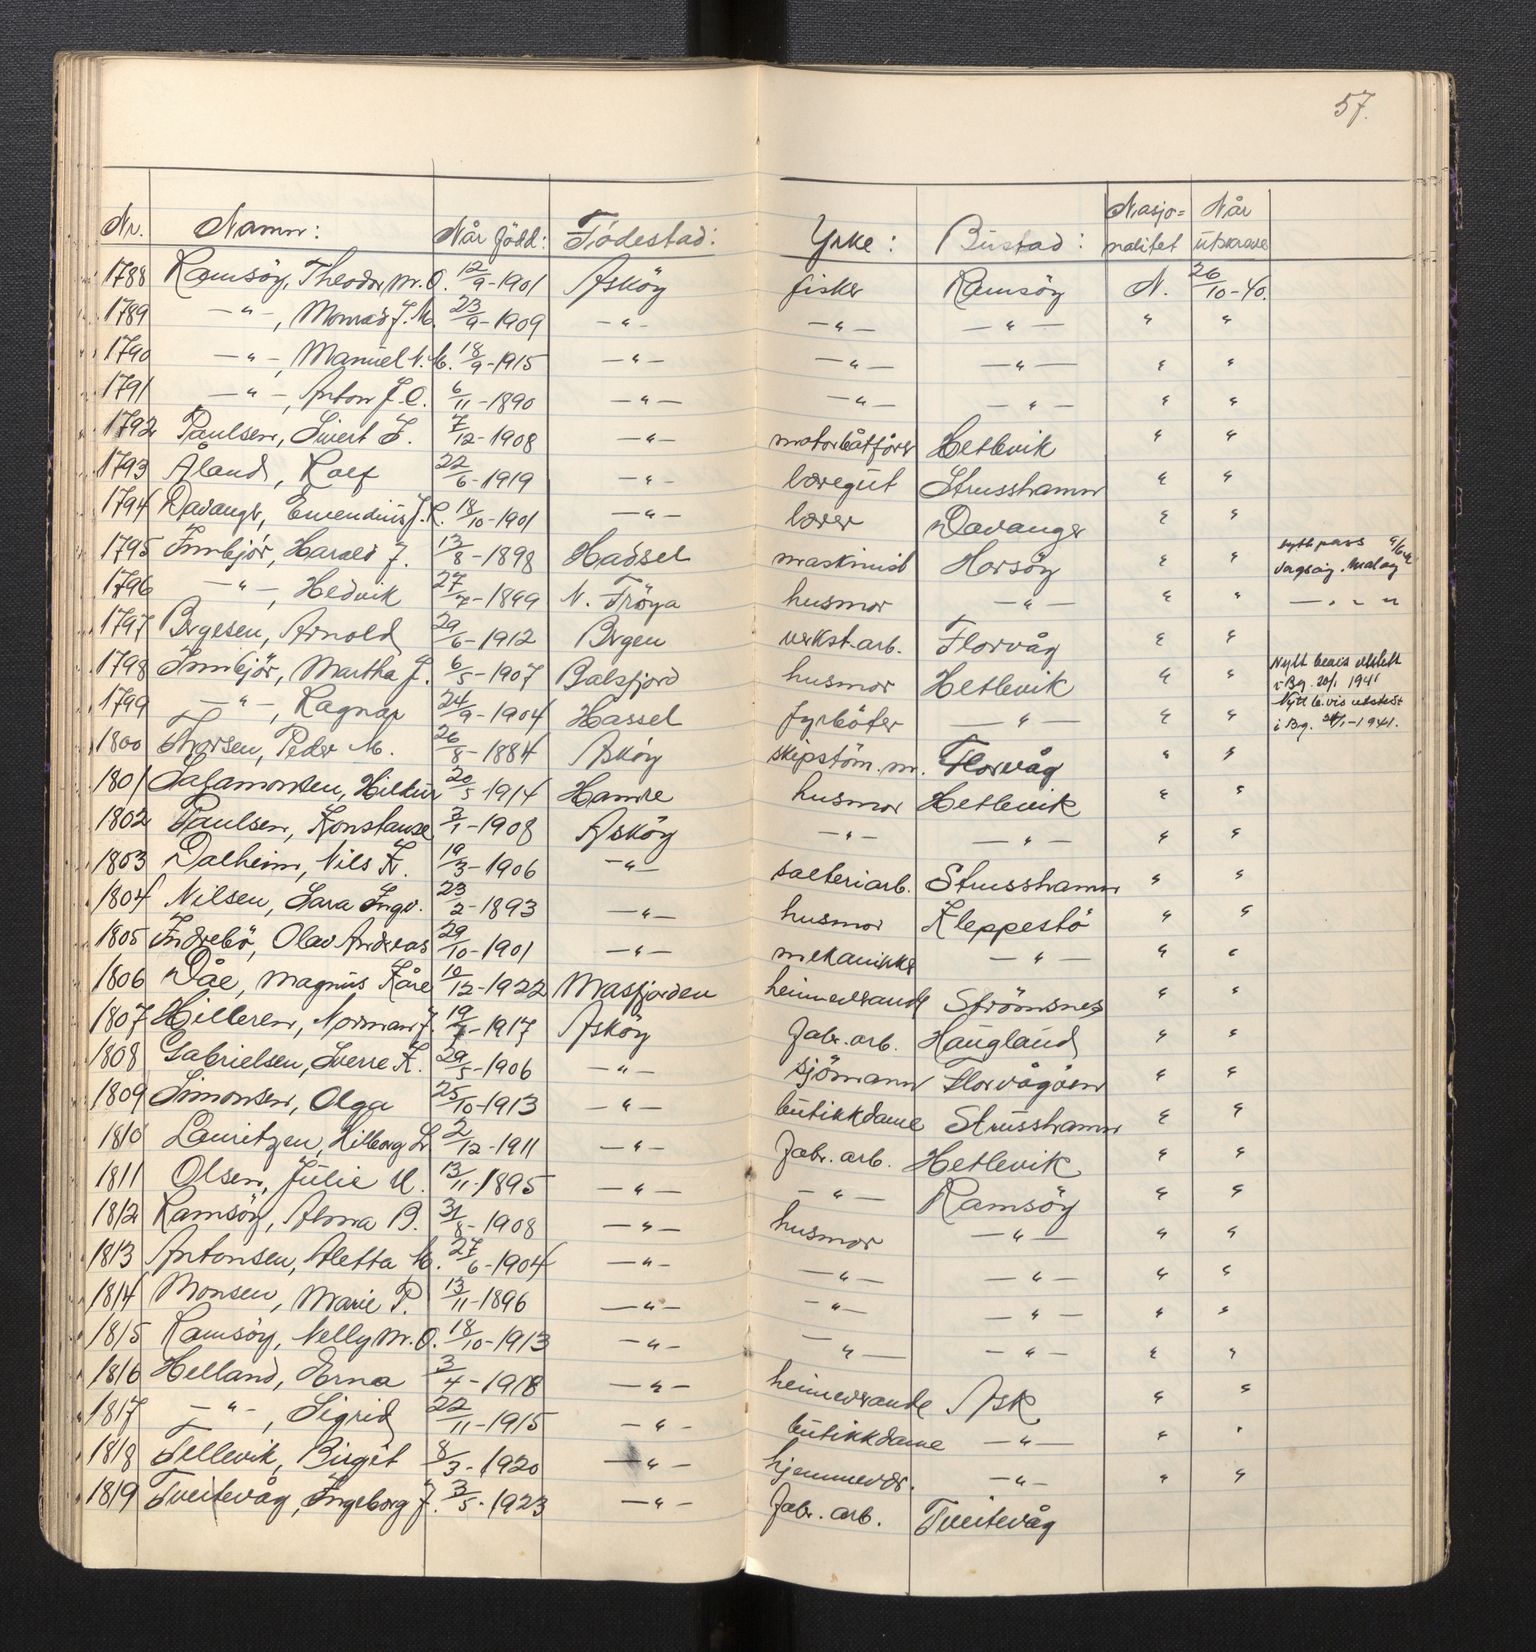 57.
Nr. Namn: Når född: Födestad: Yrke: Bustad: Nasjo=nalitet Når utskreve
1788 Ramsöy, Theodor M.O. 12/9-1901 Asköy fisker Ramsöy N. 26/10-40.
1789 —"—, Monrad J.M. 23/9-1909 —"— —"— —"— " "
1790 —"—, Manuel N.M. 18/9-1915 —"— —"— —"— " "
1791 —"—, Anton J.O. 6/11-1890 —"— —"— —"— " "
1792 Paulsen, Sivert J. 7/12-1908 —"— motorbåtförer Hetlevik " "
1793 Åland, Rolf 22/6-1919 —"— læregut Strusshamn " "
1794 Davanger, Emendius J.R. 18/10-1901 —"— lærer Davanger " "
1795 Innbjör, Harald J. 13/8-1898 Hadsel maskinist Horsöy " " nytt pass Vågsöy. Måløy
1796 —"—, Hedvik 27/7-1899 N. Fröya husmor —"— " " — " " "
1797 Bergesen, Arnold 29/6-1912 Bergen verkst.arb. Florvåg " "
1798 Innbjör, Martha J. 6/5-1907 Balsfjord husmor Hetlevik " " Nytt bevis utstedt i Bg. 20/1 1941
1799 —"—, Ragnar 24/9-1904 Hassel fyrböter —"— " " Nytt bevis utstedt i Bg. 21/1-1941.
1800 Thorsen, Peder M. 26/8-1884 Asköy skipstöm.m. Florvåg " "
1801 Salamonsen, Hildur 20/5-1914 Hamre husmor Hetlevik " "
1802 Paulsen, Konstanse 3/1-1908 Asköy —"— —"— " "
1803 Dalheim, Nils K. 19/3-1906 —"— salteriarb. Strusshamn " "
1804 Nilsen, Sara Ingv. 23/2-1893 —"— husmor Kleppestö " "
1805 Indrebö, Olav Andreas 29/10-1901 —"— mekaniker —"— " "
1806 Dåe, Magnus Kåre 10/12-1922 Masfjorden heimeverande Strömsnes " "
1807 Hilleren, Norman J. 19/7-1917 Asköy Fabr.arb. Haugland " "
1808 Gabrielsen, Sverre K. 29/5-1906 —"— sjömann Florvågöen " "
1809 Simonsen, Olga 25/10-1913 —"— butikkdame Strusshamn " "
1810 Lauritzen, Hilborg L. 2/12-1911 —"— Fabr.arb. Hetlevik " "
1811 Olsen, Julie M. 13/11-1895 —"— —"— Ramsöy " "
1812 Ramsöy, Alma B. 31/8-1908 —"— husmor —"— " "
1813 Antonsen, Aletta M. 27/6-1904 —"— —"— —"— " "
1814 Monsen, Marie P. 13/11-1896 —"— —"— —"— " "
1815 Ramsöy, Nelly M.O. 18/10-1913 —"— —"— —"— " "
1816 Helland, Erna 3/4-1918 —"— heimeverande Ask " "
1817 —"—, Sigrid 22/11-1915 —"— butikkdame —"— " "
1818 Tellevik, Birgit 8/3-1920 —"— hjemmevær. —"— " "
1819 Tveitevåg, Ingeborg J. 3/5-1923 —"— Fabr.arb. Tveitevåg